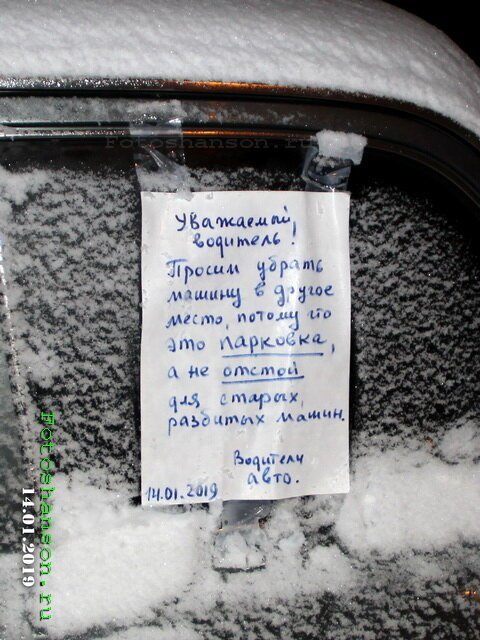 Fotoshanson.ru
Уважаемый
водитель!
Просим убрать
машину в другое
место, потому что
это парковка,
а не отстой
для старых,
разбитых машин.
Водители
авто.
14.01.2019
Fotoshanson.ru
14.01.2019